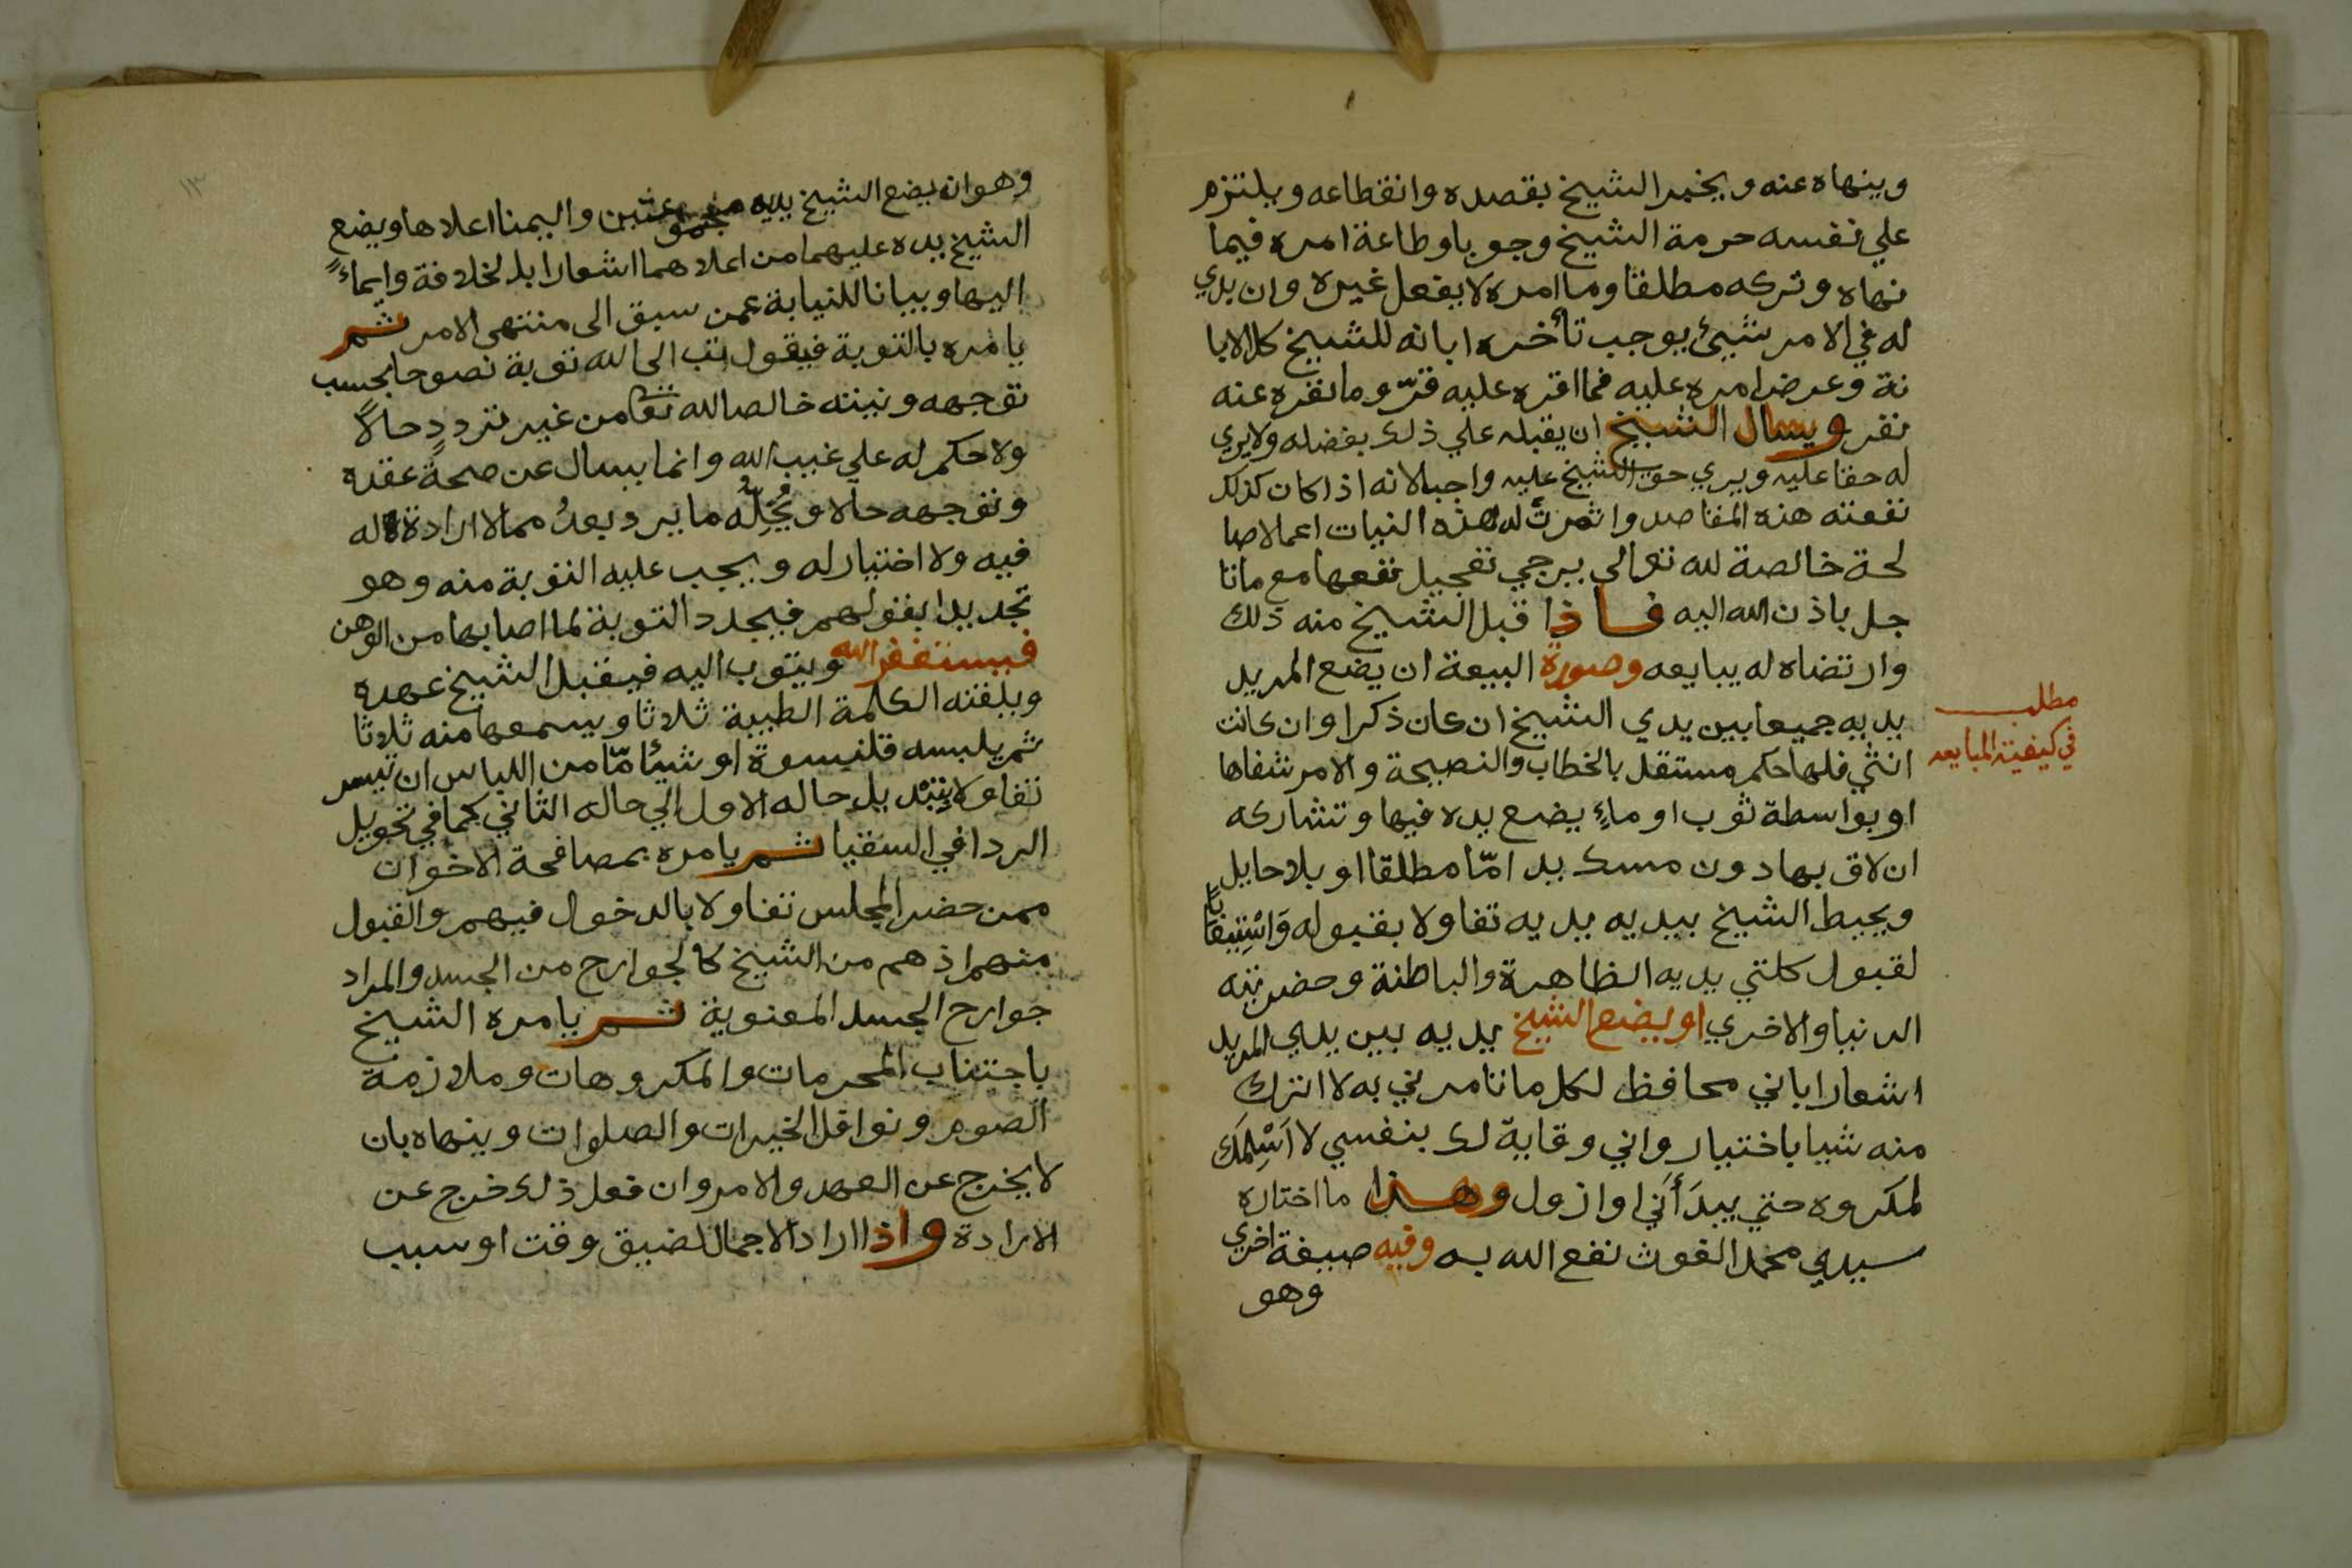 وينهاه عنه ويخبر الشيخ بقصده وانقطاعه ويلتزم
علي نفسه حرمة الشيخ وجوبا وطاعة امره فيما
نهاه وتركه مطلقا وما امره لا يفعل غيره وان بدي
له في الامر شيئ يوجب تأخره ابانه للشيخ كل الابا
نة وعرض امره عليه فما اقره عليه قرّ وما نفره عنه
نفر ويسال الشيخ ان يقبله علي ذلك بفضله ولا يري
له حقا عليه ويري حق الشيخ عليه واجبا لانه اذا كان كذلك
نفعته هذه المقاصد واثمرت له هذه النيات اعمالا صا
لحة خالصة لله تعالي يرجي تعجيل نفعها مع ماتا
جل باذن الله اليه فاذا قبل الشيخ منه ذلك
وارتضاه له يبايعه وصورة البيعة ان يضع المريد
مطلب
في كيفية المبايعه
يديه جميعا بين يدي الشيخ ان كان ذكرا وان كانت
انثي فلها حكم مستقل بالخطاب والنصيحة والامر شفاها
او بواسطة ثوب او ماءٍ يضع يده فيها وتشاركه
ان لاق بها دون مسك يد امّا مطلقا او بلا حايل
ويحيط الشيخ بيديه يديه تفاولا بقبوله
لقبول كلتي يديه الظاهرة والباطنة وحضرتيه
الدنيا والاخري او يضع الشيخ يديه بين يدي المريد
اشعارا باني محافظ لكل ما تامرني به لا اترك
منه شيا باختيار واني وقاية لك بنفسي لا اسلمك
لمكروه حتي يبدأني او ازول وهذا ما اختاره
سيدي محمد الغوث نفع الله به وفيه صيغة اخري
وهو
١٣
وهو ان يضع الشيخ يديه واليمنا اعلاها ويضع
الشيخ يده عليهما من اعلاهما اشعارا بالخلافة وايماءً
اليها وبيانا للنيابة عمن سبق الى منتهى الامر ثم
يامره بالتوبة فيقول تب الى الله توبة نصوحا بحسب
توجهه ونيته خالصا لله تعا من غير تردد حالاً
ولا حكم له علي غيب الله وانما يسال عن صحة عقده
وتوجهه حالا ما يرد بعدُ مما لا ارادة له
فيه ولا اختيار له ويجب عليه التوبة منه وهو
تجديدا بقولهم فيجدد التوبة لما اصابها من الوهن
فيستغفر الله ويتوب اليه فيقبل الشيخ عهده
ويلقنه الكلمة الطيبة ثلاثا ويسمعها منه ثلاثا
ثم يلبسه قلنسوة او شيأ مّا من اللباس ان تيسر
تفاولا بتبديل حاله الاول الي حاله الثاني كما في تحويل
الردا في السقيا ثم يامره بمصافحة الاخوان
ممن حضر المجلس تفاولا بالدخول فيهم والقبول
منهم اذ هم من الشيخ كالجوارح من الجسد والمراد
جوارح الجسد المعنوية ثم يامره الشيخ
باجتناب المحرمات والمكروهات وملازمة
الصوم ونوافل الخيرات والصلوات وينهاه بان
لا يخرج عن العهد والامر وان فعل ذلك خرج عن
الارادة واذا اراد الاجمال لضيق وقت او سبب